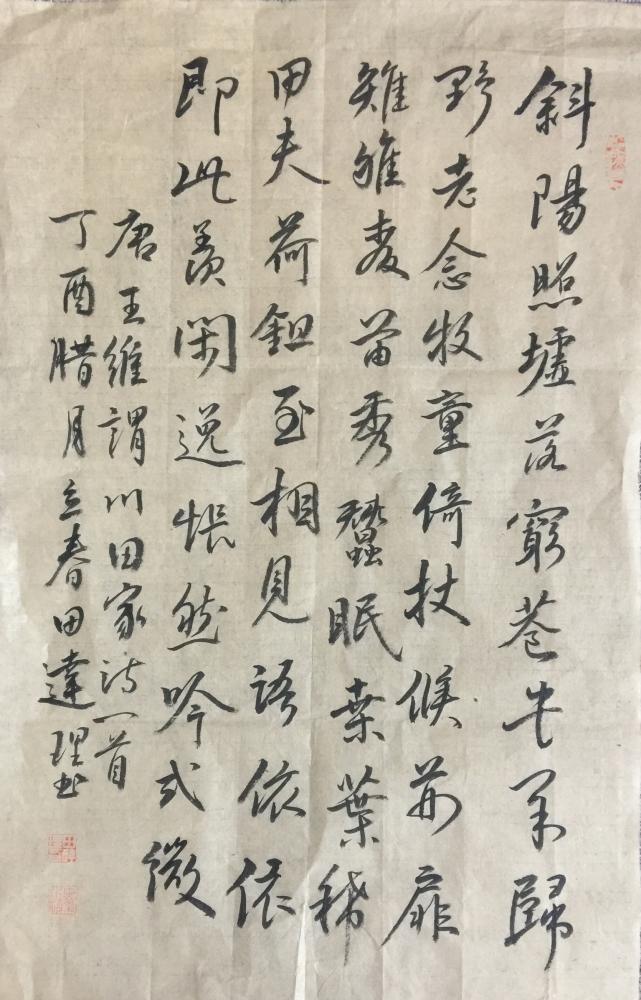 斜陽照墟落窮巷牛羊歸
野老念牧童倚杖候荊扉
雉雊麥苗秀蠶眠桑葉稀
田夫荷鉏至相見語依依
即此羨閑逸悵然吟式微
唐王維謂川田家詩一首
丁酉腊月立春田達理书